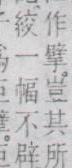 作擘豈其所
絞一幅不辟